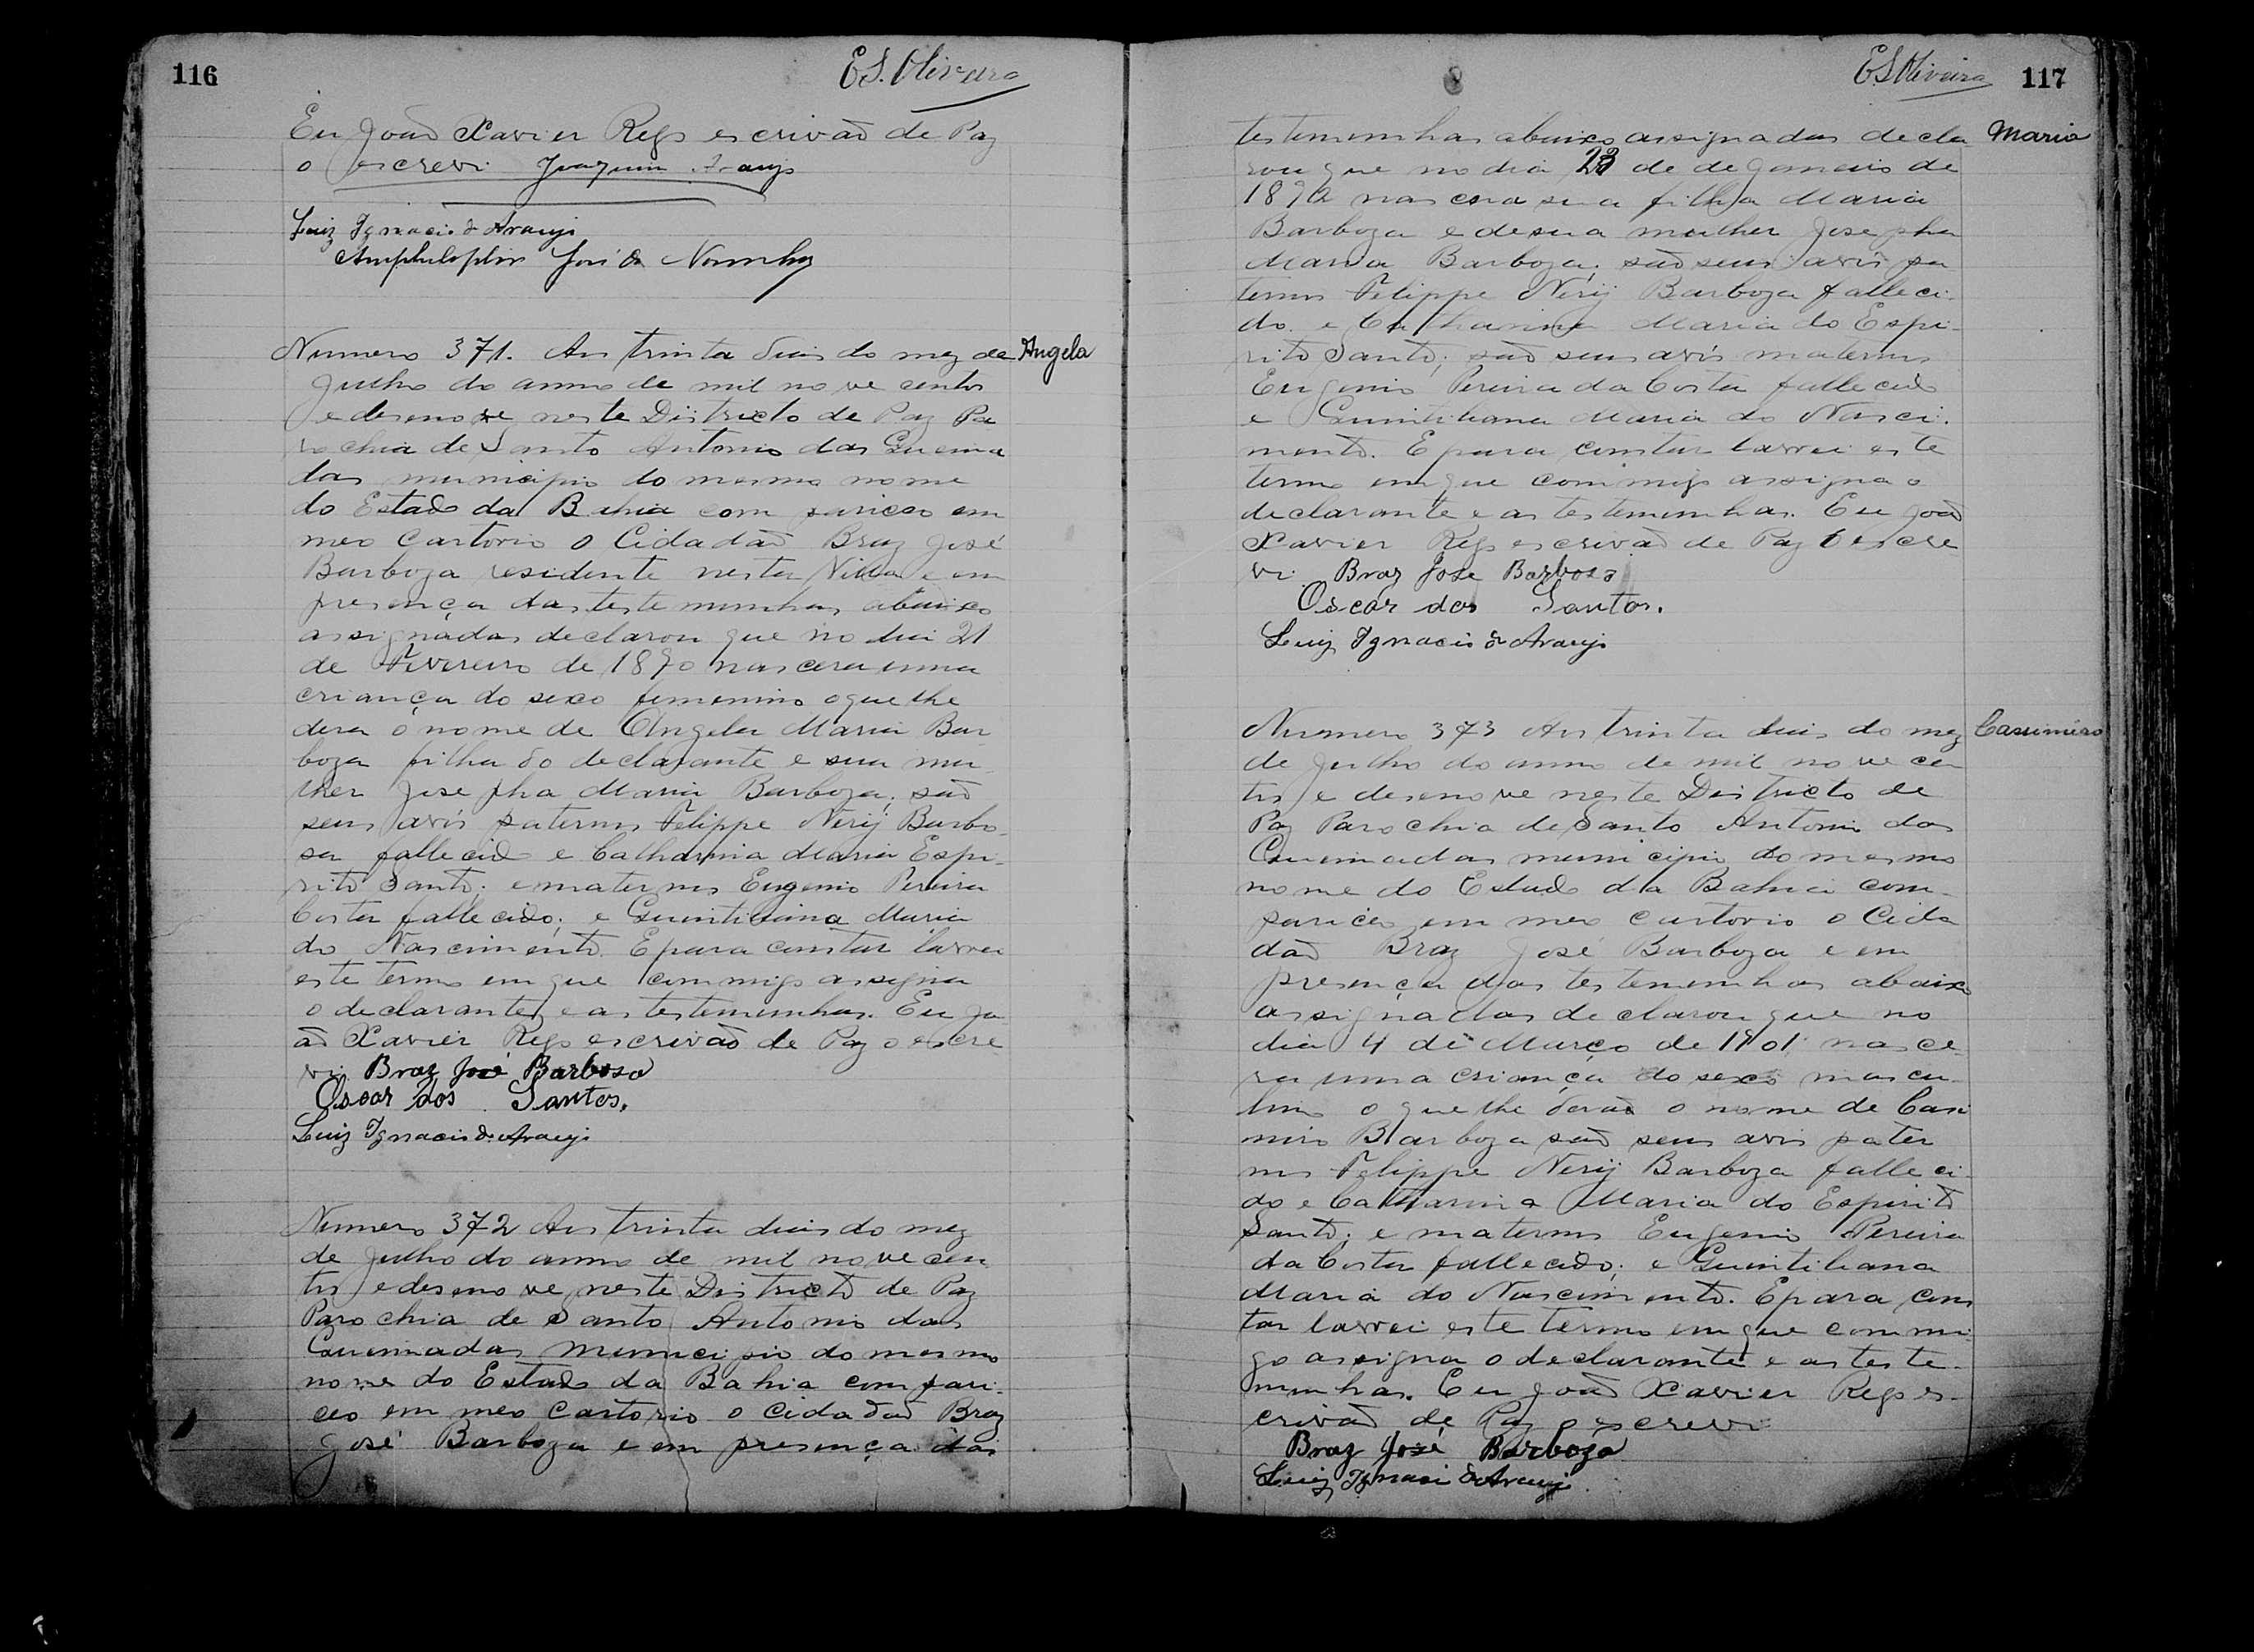 116
E.S. Oliveira
Eu João Xavier Rego escrivão de Paz
o escrevi Joaquim Araujo
Luiz Ignacio de Araujo
Amphilophio José de Noronha
Numero 371. Aos trinta dias do mez de Angela
Julho do anno de mil nove centos
e desenove neste Districto de Paz Pa
rochia de Santo Antonio das Queima
das municipio do mesmo nome
do Estado da Bahia com pariceo em
meo Cartorio o Cidadão Braz José
Barboza residente nesta Villa e em
presença das testemunhas abaixo
assignadas declarou que no dia 21
de Fevereiro de 1890 nascera uma
criança do sexo femenino o que lhe
dera o nome de Angela Maria Bar
boza filha do declarante e sua mu
lher Josepha Maria Barboza; são
seus avós paternos Felippe Nerij Barbo
sa fallecido e Catharina Maria Espi
rito Santo; e maternos Eugenio Pereira
Costa fallecido; e Quintiliana Maria
do Nascimento. E para constar lavrei
este termo em que commigo assigna
o declarante e as testemunhas. Eu Jo
ão Xavier Rego escrivão de Paz o escre
vi. Braz José Barbosa
Oscar dos Santos.
Luiz Ignacio de Araujo
Numero 372 Aos trinta dias do mez
de Julho do anno de mil nove cen
tos e desenove neste Districto de Paz
Parochia de Santo Antonio das
Queimadas Municipio do mesmo
nome do Estado da Bahia compari
ceo em meo Cartorio o Cidadão Braz
José Barboza e em presença das
E.S. Oliveira 117
testemunhas abaixo assignadas decla Maria
rou que no dia 23 de de Janeiro de
1892 nascera sua filha Maria
Barboza e de sua mulher Josepha
Maria Barboza; são seus avós pa
ternos Felippe Nerij Barboza falleci
do e Catharina Maria do Espi
rito Santo; são seus avós maternos
Eugenio Pereira da Costa fallecido
e Quintiliana Maria do Nasci
mento. E para constar lavrei este
termo em que commigo assigna o
declarante e as testemunhas. Eu João
Xavier Rego escrivão de Paz o escre
vi. Braz José Barbosa
Oscar dos Santos.
Luiz Ignacio de Araujo
Numero 373 Aos trinta dias do mez Casimiro
de Julho do anno de mil nove cen
tos e desenove neste Districto de
Paz Parochia de Santo Antonio das
Queimadas municipio do mesmo
nome do Estado da Bahia com
pariceo em meo cartorio o Cida
dão Braz José Barboza e em
presença das testemunhas abaixo
assignadas declarou que no
dia 4 de Março de 1901 nasce
ra uma criança do sexo mascu
lino o que lhe derão o nome de Casi
miro Barboza são seus avós pater
nos Felippe Nerij Barboza falleci
do e Catharina Maria do Espirito
Santo; e maternos Eugenio Pereira
da Costa fallecido; e Quintiliana
Maria do Nascimento. E para cons
tar lavrei este termo em que commi
go assigna o declarante e as teste
munhas. Eu João Xavier Rego es
crivão de Paz o escrevi
Braz José Barboza
Luiz Ignacio de Araujo